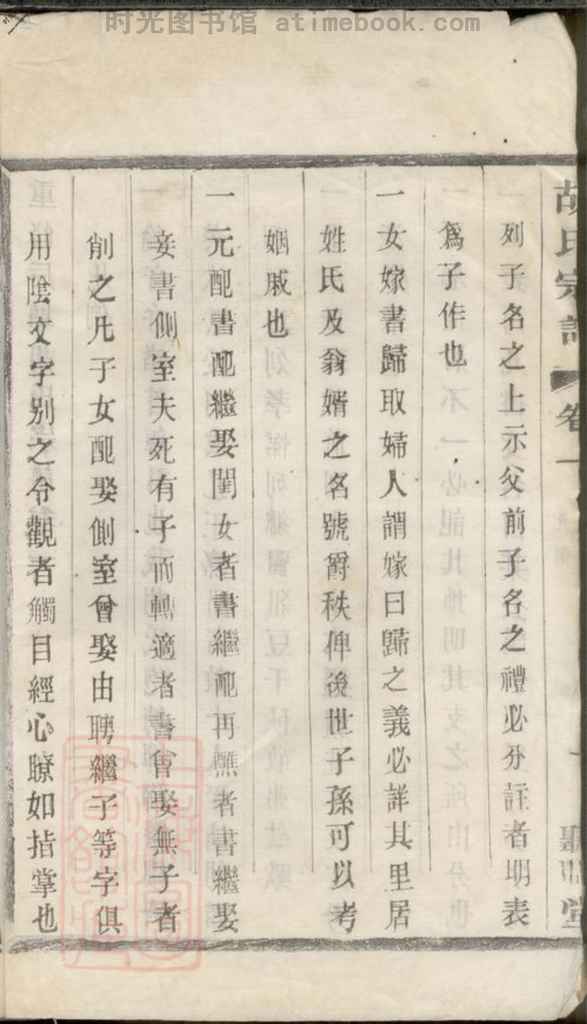 时光图书馆 atimebook.com
胡氏宗譜 卷一
列子名之上示父前子名之禮必分註者明表
爲子作也
一女嫁書歸取婦人謂嫁曰歸之義必詳其里居
姓氏及翁婿之名號爵秩俾後世子孫可以考
姻戚也
一元配書配繼娶閨女者書繼配再醮者書繼娶
妾書側室夫死有子而轉適者書曾娶無子者
削之凡子女配娶側室曾娶由聘繼子等字俱
用陰文字别之令觀者觸目經心瞭如指掌也